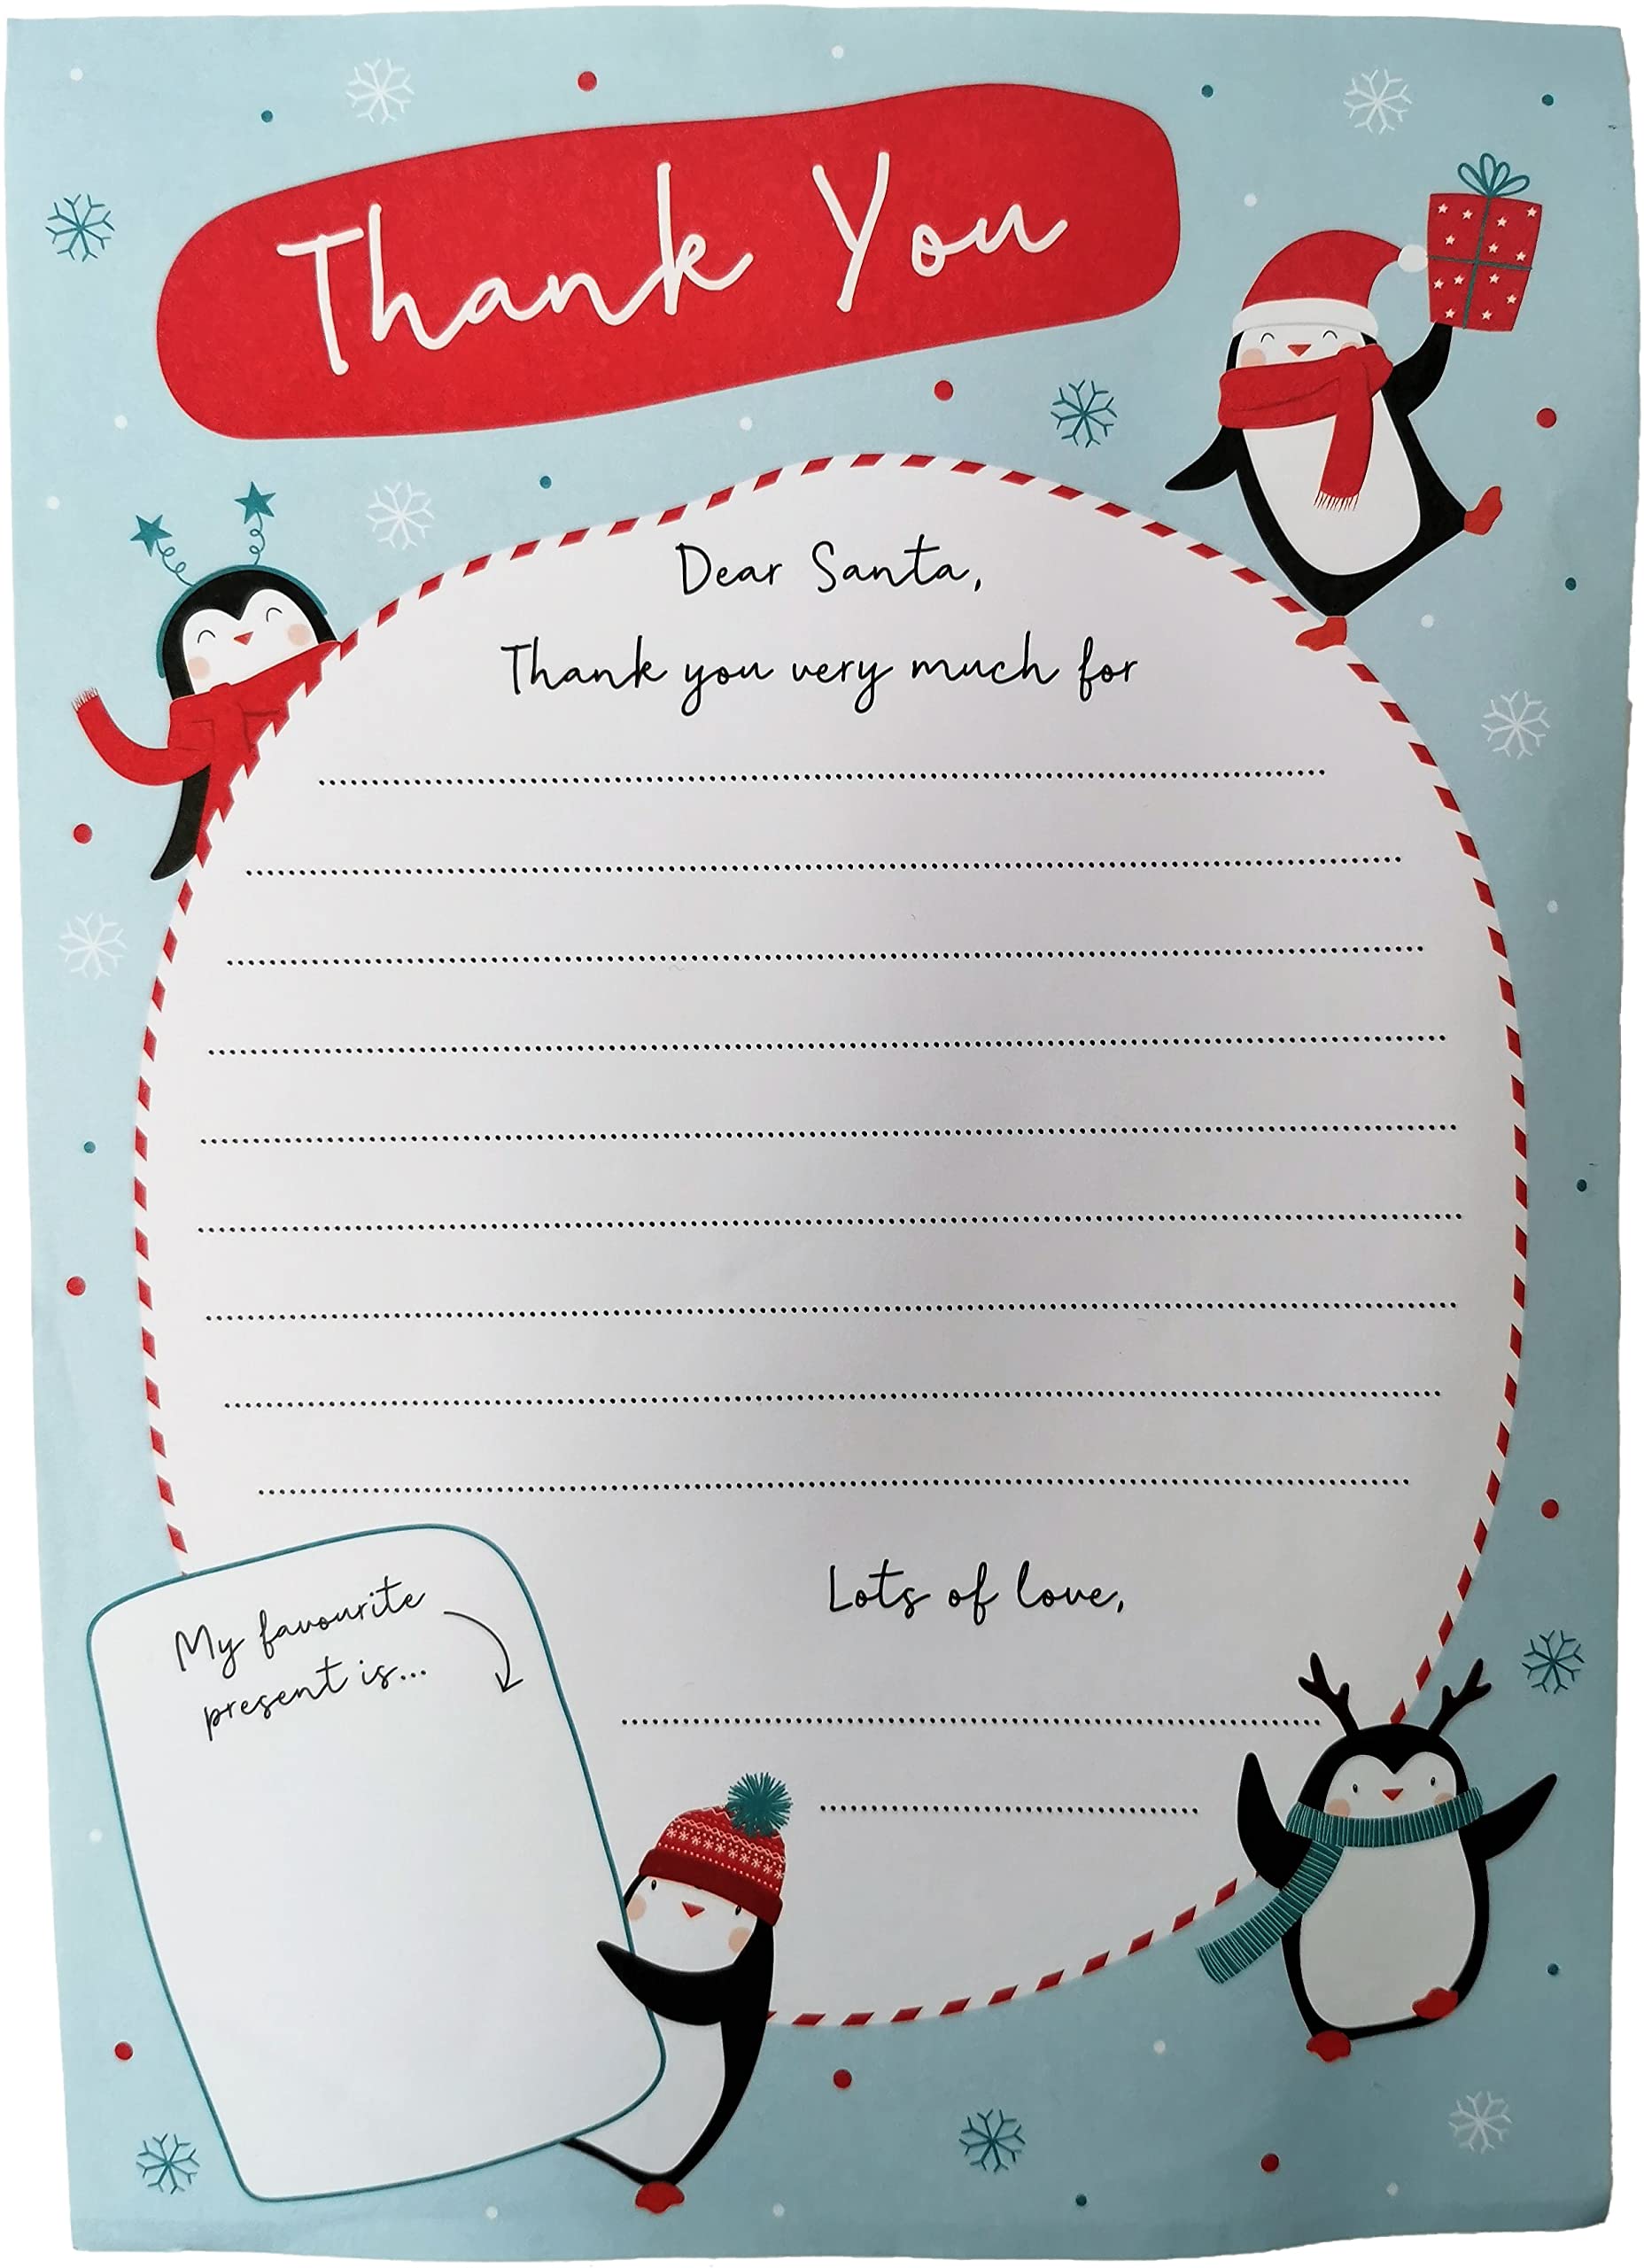 Thank You
Dear Santa,
Thank you very much for
Lots of love,
My favourite
present is...